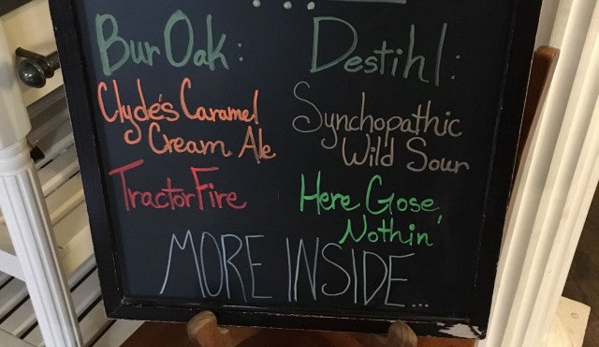 Bur Oak:
Clyde's Caramel
Cream Ale
Tractor Fire
Destihl:
Synchopathic
Wild Sour
Here Gose
Nothin'
MORE INSIDE...